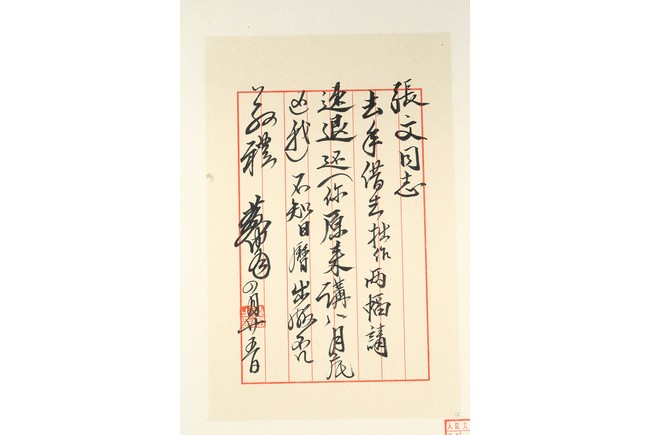 張文同志
去年借去拙作两幅請
速退还（你原来講八月底
退我）不知日曆出版否
敬禮
黄
四月廿五日